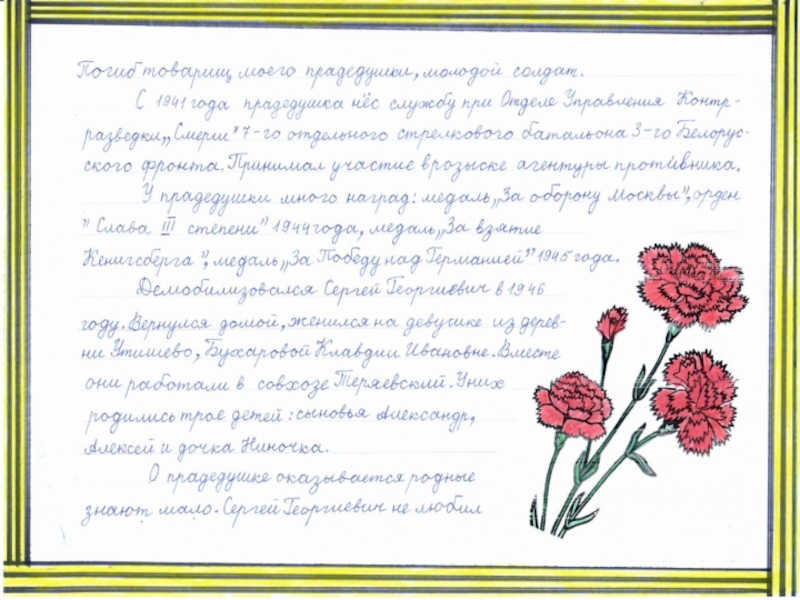 Погиб товарищ моего прадедушки, молодой солдат.
С 1941 года прадедушка нёс службу при Отделе Управления Контр-
разведки „Смерш" 7-го отдельного стрелкового батальона 3-го Белорус-
ского фронта. Принимал участие в розыске агентуры противника.
У прадедушки много наград: медаль „За оборону Москвы", орден
"Слава III степени" 1944 года, медаль „За взятие
Кенигсберга", медаль „За Победу над Германией" 1945 года.
Демобилизовался Сергей Георгиевич в 1946
году. Вернулся домой, женился на девушке из дерев-
ни Утишево, Бухаровой Клавдии Ивановне. Вместе
они работали в совхозе Теряевский. У них
родились трое детей: сыновья Александр,
Алексей и дочка Ниночка.
О прадедушке оказывается родные
знают мало. Сергей Георгиевич не любил